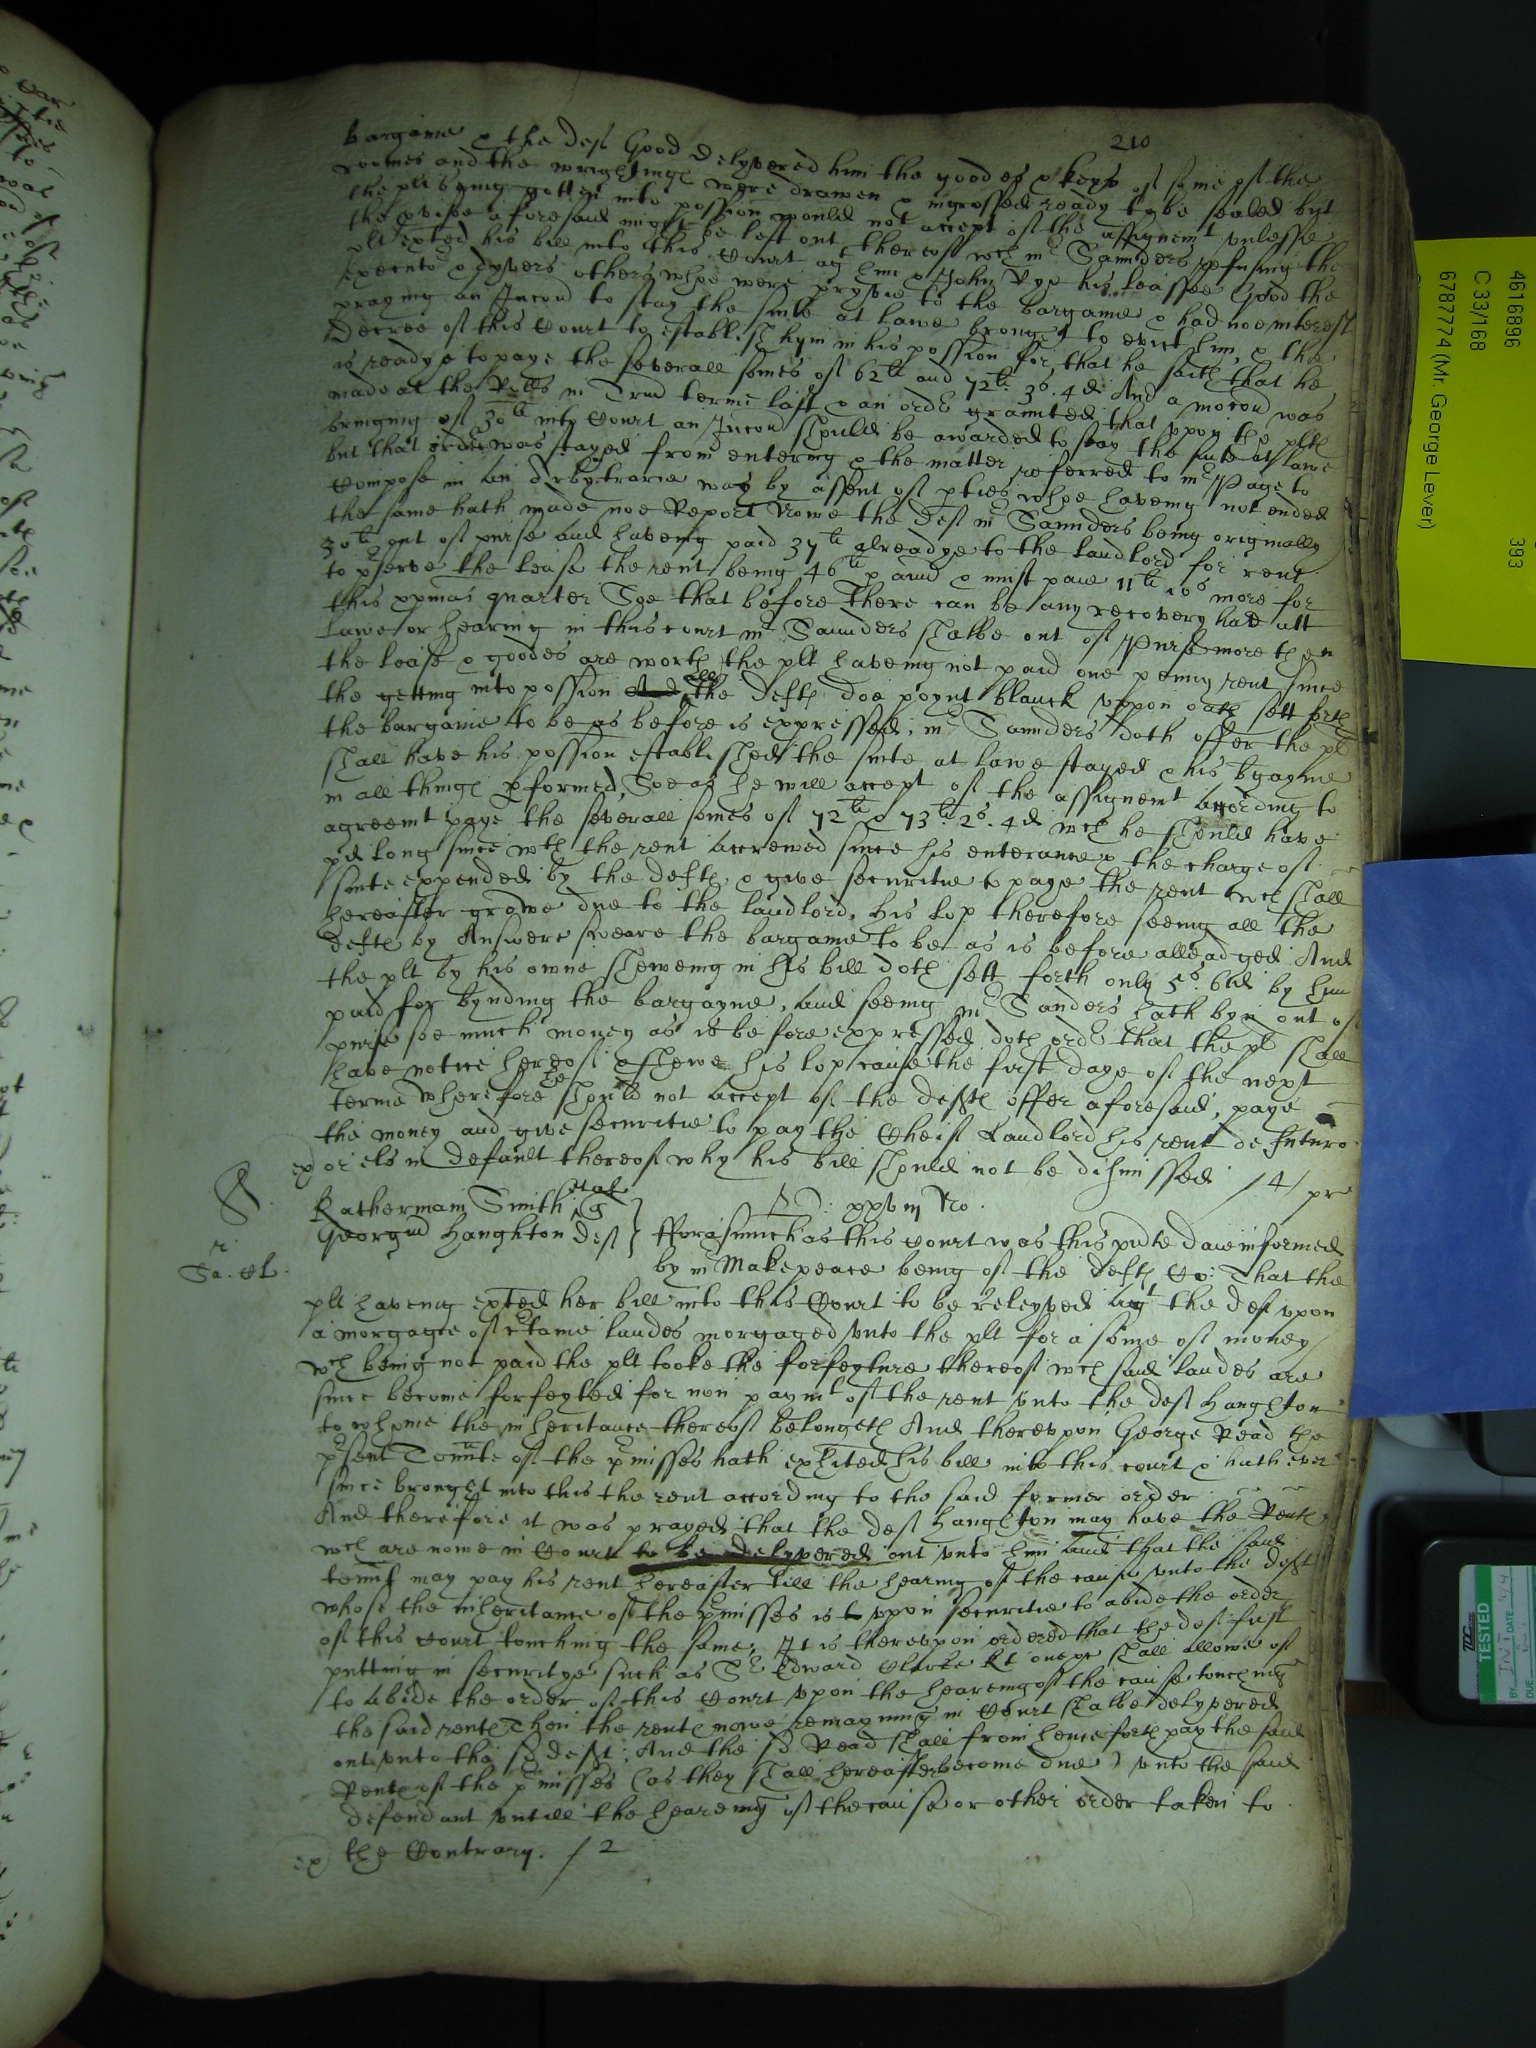 210
bargaine & the deft Good delyvered him the goodes & keys of some of the
roomes and the wrightings were drawen & ingrossed ready to be sealed but
the plt being gotten into possion would not accept of the assignemt unlesse
the provisoe aforesaid might be left out thereof wch mr Saunders refusing the
plt exted his bill into this Court agt him & John Rye his leassee Good the
executor & dyvers others whoe were pryvie to the bargaine & had noe interest
praying an Jnccon to stay the suite at lawe brought to evict him, & the
decree of this Court to establish hym in his possion for that he saith that he
is readye to paye the severall somes of 62li and 72li 3s. 4d And a mocon was
made at the Rolls in Trin terme last & an ordr graunted that upon the plts
bringing of 30li into Court an Jnccon should be awarded to stay the suite at lawe
but that order was stayed from entering & the matter referred to mr Page to
Compose in an Arbytrarie way by assent of pties whoe haveing not ended
the same hath made noe Report Nowe the deft mr Saunders being originally
30li out of purse and haveing paid 37li alreadye to the landlord for rent
to pserve the lease the rent being 46li p ann & must paie 11li 10s more for
this xpmas quarter Soe that before There can be any recovery had att
lawe or hearing in this court mr Saunders shalbe out of Purse more then
the lease & goodes are worth, the plt haveing not paid one penny rent since
the getting into possion all the defts doe poynt blanck uppon oath sett forth
the bargaine to be as before is expressed, mr Saunders doth offer the plt
shall have his possion established the suite at lawe stayed & his bgayne
in all things pformed, Soe as he will accept of the assignemt according to
agreemt paye the severall somes of 72li & 73li. 2s. 4d wch he should have
pd long since wth the rent accrewed since his enterance & the charge of
suite expended by the defts & give securitie to paye the rent wch shall
hereafter growe due to the landlord, his lop therefore seeing all the
defts by Answere sweare the bargaine to be as is before alleadged And
the plt by his owne sheweing in his bill doth sett forth only 5s. 6d by him
paid for bynding the bargayne, and seeing mr Sanders hath byn out of
purse soe much money as is before expressed doth ordr that the plt shall
have notice hereof & shewe his lop cause the first daye of the next
terme wherefore he should not accept of the defts offer aforesaid, paye
the money and give securitie to pay the Cheif Landlord his rent de futuro
ex or els in default thereof why his bill should not be dismissed /4/ pr
Katherinam Smith qt
Georgiu Haughton deft } Fforasmuch as this Court was this pnte daie informed
Sa. Cl.
by mr Makepeace being of the defts Co: That the
plt haveing exted her bill into this Court to be releyved agt the deft upon
a morgage of ctaine landes morgaged unto the plt for a some of money
wch being not paid the plt tooke the forfeyture thereof wch said landes are
since become forfeyted for non paymt of the rent unto the deft Haughton
to whome the inheritance thereof belongeth And thereupon George Read the
psent Tennte of the pmisses hath exhited his bill into this court & hath ever
since brought into this the rent according to the said former order
And therefore it was prayed that the deft Haughton may have the Rents
wch are nowe in Court to be delyvered out unto him and that the said
tennt may pay his rent hereafter till the hearing of the cause unto the deft
whose the inheritance of the pmisses is upon securitie to abide the order
of this Court touching the same, It is thereupon ordered that the deft first
putting in securitye such as Sr Edward Clarke kt one &c shall allowe of
to abide the order of this Court upon the heareing of the cause touching
the said rents Then the rents nowe remayning in Court shalbe delyvered
out unto the sd deft: And the sd Read shall from henceforth pay the said
Rents of the pmisses (as they shall hereafter become due) unto the said
defendant untill the heareing of the cause or other order taken to
ex the Contrary. /2
4616896 393
C 33/168
6787774 (Mr. George Lever)
TESTED